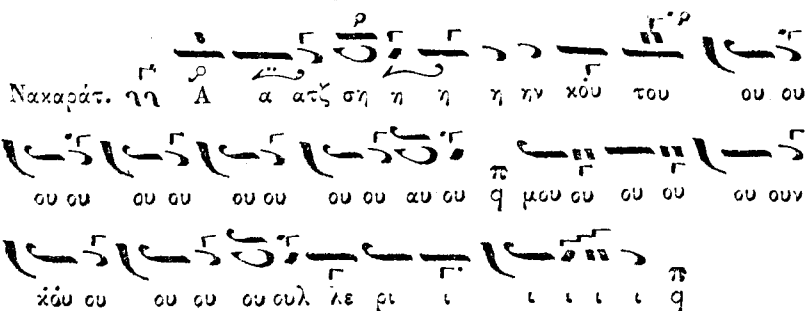 Νακαράτ. Α α ατζ ση η η η ην κόυ του ου ου
ου ου ου ου ου ου ου ου αυ ου π q μου ου ου ου ου ουν
κόυ ου ου ου ου ουλ λε ρι ι ι ι ι ι π q